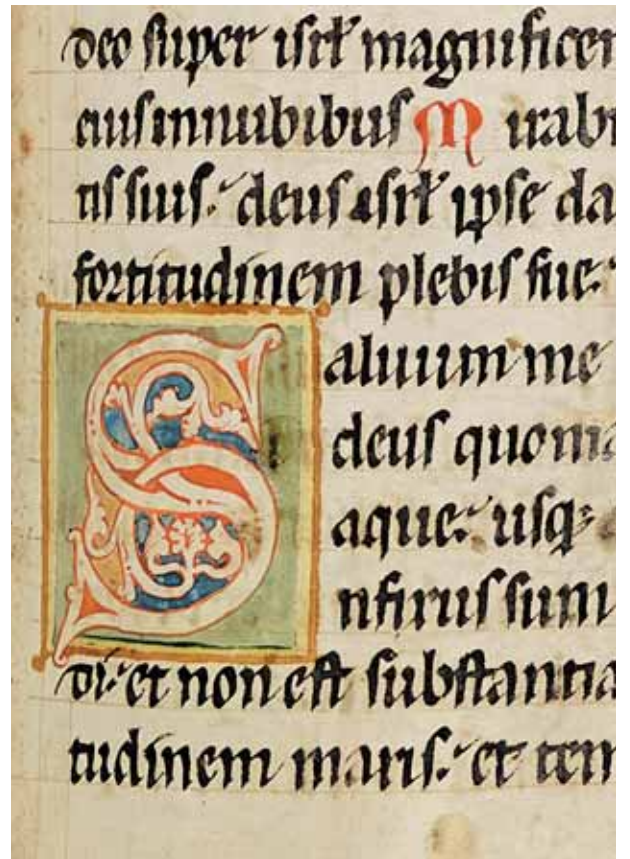 deo super isrł magnificen
eius in nubibus Mirabi
tis suis. deus isrł ipse da
fortitudinem plebis sue.
Saluum me
deus quoni
aque. usq;
nfixus sum
di. et non est substantia
tudinem maris. et tem